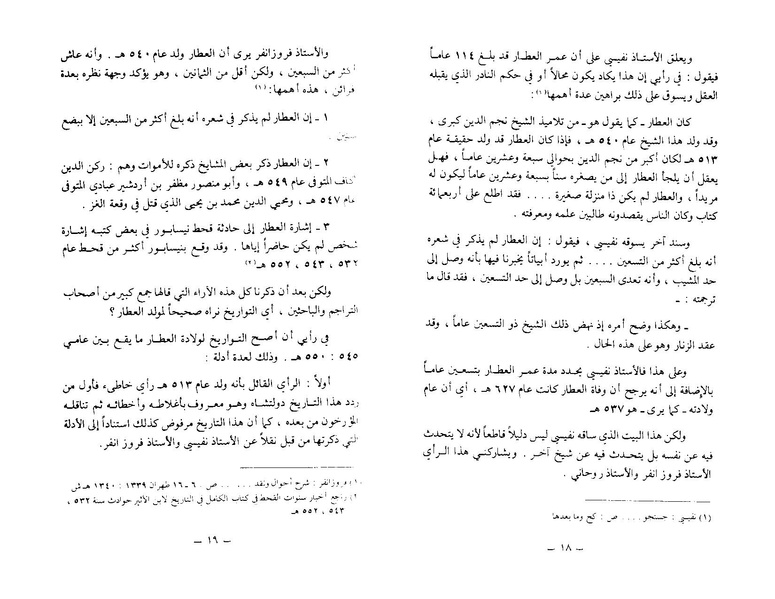 ويعلق الأستاذ نفيسي على أن عمر العطار قد بلغ ١١٤ عاماً
فيقول : في رأيي إن هذا يكاد يكون محالاً أو في حكم النادر الذي يقبله
العقل ويسوق على ذلك براهين عدة أهمها(١) :
كان العطار ـ كما يقول هو ـ من تلاميذ الشيخ نجم الدين كبرى ،
وقد ولد هذا الشيخ عام ٥٤٠ هـ ، فإذا كان العطار قد ولد حقيقة عام
٥١٣ هـ لكان أكبر من نجم الدين بحوالي سبعة وعشرين عاماً ، فهل
يعقل أن يلجأ العطار إلى من يصغره سناً بسبعة وعشرين عاماً ليكون له
مريداً ، والعطار لم يكن ذا منزلة صغيرة .... فقد اطلع على أربعمائة
كتاب وكان الناس يقصدونه طالبين علمه ومعرفته .
وسند آخر يسوقه نفيسي ، فيقول : إن العطار لم يذكر في شعره
أنه بلغ أكثر من التسعين .... ثم يورد أبياتاً يخبرنا فيها بأنه وصل إلى
حد المشيب ، وأنه تعدى السبعين بل وصل إلى حد التسعين ، فقد قال ما
ترجمته : ـ
ـ وهكذا وضح أمره إذ نهض ذلك الشيخ ذو التسعين عاماً ، وقد
عقد الزنار وهو على هذه الحال .
وعلى هذا فالأستاذ نفيسي يحدد مدة عمر العطار بتسعين عاماً
بالإضافة إلى أنه يرجح أن وفاة العطار كانت عام ٦٢٧ هـ ، أي أن عام
ولادته ـ كما يرى ـ هو ٥٣٧ هـ
ولكن هذا البيت الذي ساقه نفيسي ليس دليلاً قاطعاً لأنه لا يتحدث
فيه عن نفسه بل يتحدث فيه عن شيخ آخر . ويشاركني هذا الرأي
الأستاذ فروزانفر والأستاذ روحاني .
(١) نفيسي : جستجو .... ص : كح وما بعدها
ـ ١٨ ـ
والأستاذ فروزانفر يرى أن العطار ولد عام ٥٤٠ هـ . وأنه عاش
أكثر من السبعين ، ولكن أقل من الثمانين ، وهو يؤكد وجهة نظره بعدة
قرائن ، هذه أهمها:(١)
١ ـ إن العطار لم يذكر في شعره أنه بلغ أكثر من السبعين إلا ببضع
سنين .
٢ ـ إن العطار ذكر بعض المشايخ ذكره للأموات وهم : ركن الدين
أكاف المتوفى عام ٥٤٩ هـ ، وأبو منصور مظفر بن أردشير عبادي المتوفى
عام ٥٤٧ هـ ، ومحيي الدين محمد بن يحيى الذي قتل في وقعة الغز .
٣ ـ إشارة العطار إلى حادثة قحط نيسابور في بعض كتبه إشارة
شخص لم يكن حاضراً إياها . وقد وقع بنيسابور أكثر من قحط عام
٥٣٢ ، ٥٤٣ ، ٥٥٢ هـ(٢)
ولكن بعد أن ذكرنا كل هذه الآراء التي قالها جمع كبير من أصحاب
التراجم والباحثين ، أي التواريخ نراه صحيحاً لمولد العطار ؟
في رأيي أن أصح التواريخ لولادة العطار ما يقع بين عامي
٥٤٥ : ٥٥٠ هـ . وذلك لعدة أدلة :
أولاً : الرأي القائل بأنه ولد عام ٥١٣ هـ رأي خاطىء فأول من
ردد هذا التاريخ دولتشاه وهو معروف بأغلاطه وأخطائه ثم تناقله
المؤرخون من بعده ، كما أن هذا التاريخ مرفوض كذلك استناداً إلى الأدلة
التي ذكرتها من قبل نقلاً عن الأستاذ نفيسي والأستاذ فروزانفر .
١) فروزانفر : شرح أحوال ونقد ...... ص . ٦ ـ ١٦ طهران ١٣٣٩ : ١٣٤٠ هـ ش
٢) راجع أخبار سنوات القحط في كتاب الكامل في التاريخ لابن الأثير حوادث سنة ٥٣٢ ،
٥٤٣ ، ٥٥٢ هـ
ـ ١٩ ـ